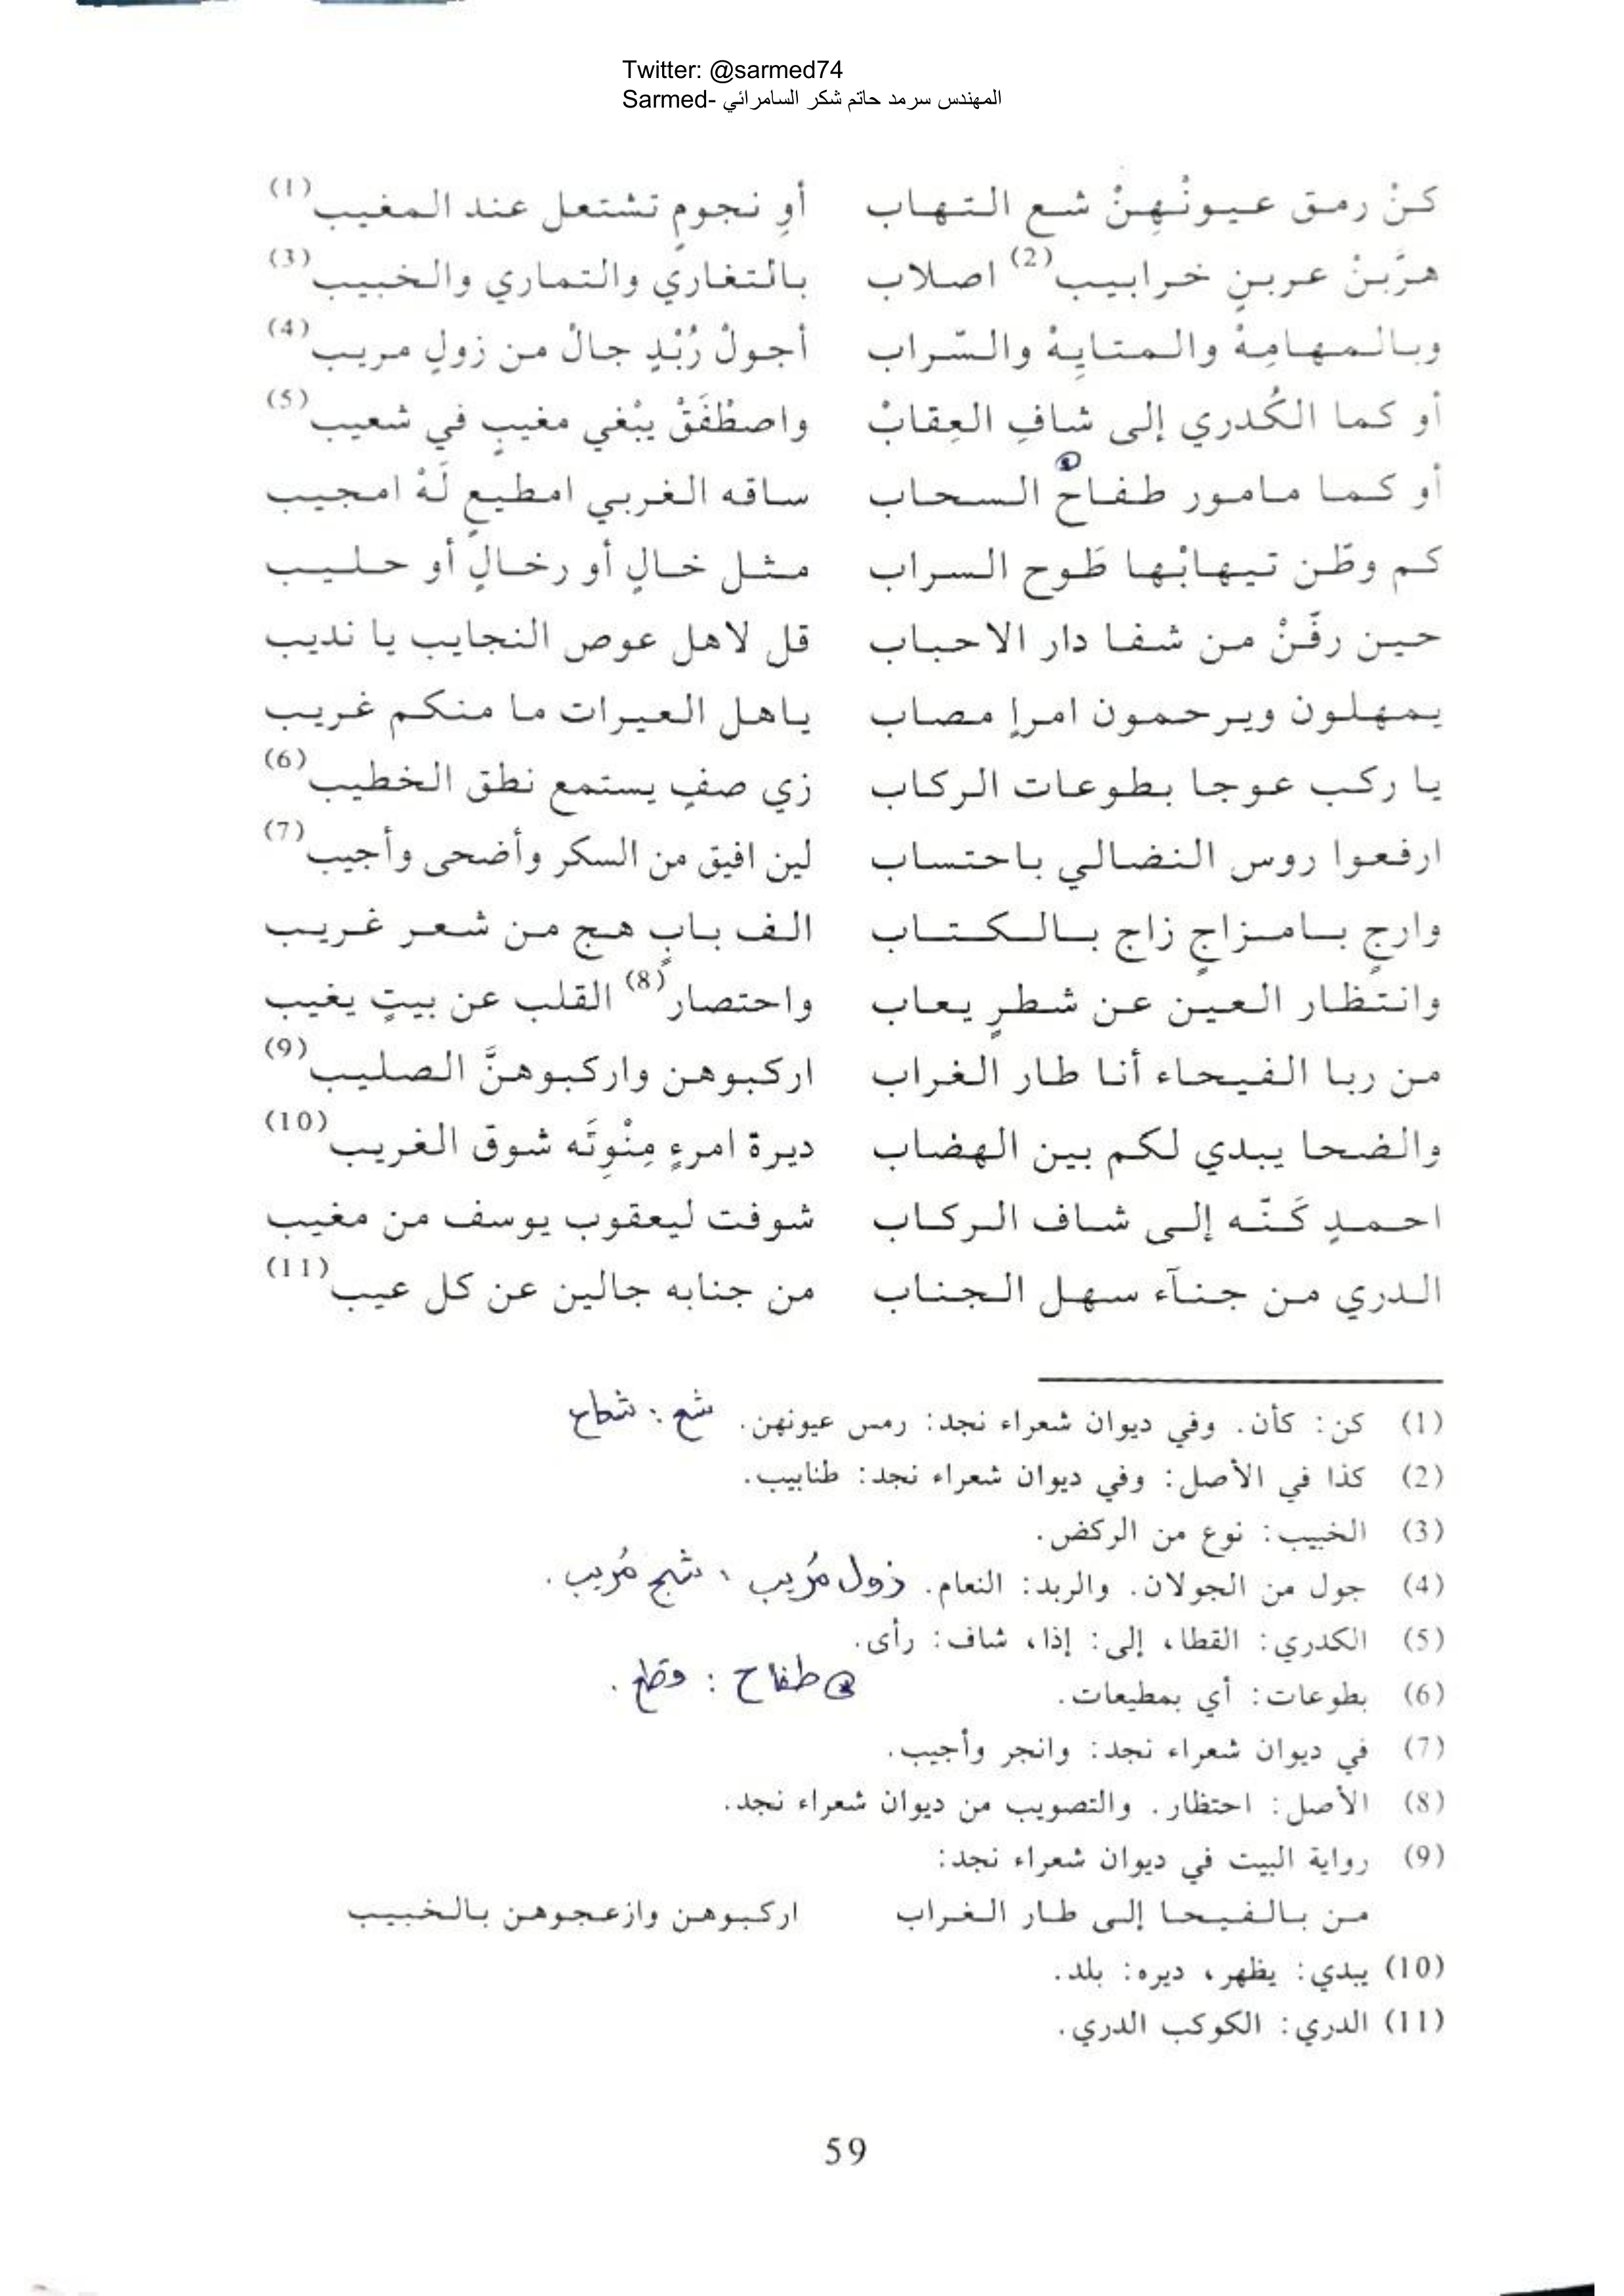 Twitter: @sarmed74
Sarmed- المهندس سرمد حاتم شكر السامرائي
كنْ رمق عيونْهِنْ شع التهاب أوِ نجومٍ تشتعل عند المغيب(1)
هرَّبنْ عربنٍ خرابيب(2) اصلاب بالتغاري والتماري والخبيب(3)
وبالمهامِهْ والمتايِهْ والسّراب أجولْ رُبْدٍ جالْ من زولٍ مريب(4)
أو كما الكُدري إلى شافِ العِقابْ واصطْفَقْ يبْغي مغيبٍ في شعيب(5)
أو كما مامور طفاح السحاب ساقه الغربي امطيعٍ لَهْ امجيب
كم وطّن تيهابْها طَوح السراب مثل خالٍ أو رخالٍ أو حليب
حين رفّنْ من شفا دار الاحباب قل لاهل عوص النجايب يا نديب
يمهلون ويرحمون امراٍ مصاب ياهل العيرات ما منكم غريب
يا ركب عوجا بطوعات الركاب زي صفٍ يستمع نطق الخطيب(6)
ارفعوا روس النضالي باحتساب لين افيق من السكر وأضحى وأجيب(7)
وارجٍ بامزاجٍ زاج بالكتاب الف بابٍ هج من شعر غريب
وانتظار العين عن شطرٍ يعاب واحتصار(8) القلب عن بيتٍ يغيب
من ربا الفيحاء أنا طار الغراب اركبوهن واركبوهنَّ الصليب(9)
والضحا يبدي لكم بين الهضاب ديرة امرءٍ مِنْوِتَه شوق الغريب(10)
احمدٍ كَنّه إلى شاف الركاب شوفت ليعقوب يوسف من مغيب
الدري من جنآء سهل الجناب من جنابه جالين عن كل عيب(11)
(1) كن: كأن. وفي ديوان شعراء نجد: رمس عيونهن. شع: شعاع
(2) كذا في الأصل: وفي ديوان شعراء نجد: طنابيب.
(3) الخبيب: نوع من الركض.
(4) جول من الجولان. والربد: النعام. زول مُريب، شبح مُريب.
(5) الكدري: القطا، إلى: إذا، شاف: رأى.
طفاح: وقطع.
(6) بطوعات: أي بمطيعات.
(7) في ديوان شعراء نجد: وانجر وأجيب.
(8) الأصل: احتظار. والتصويب من ديوان شعراء نجد.
(9) رواية البيت في ديوان شعراء نجد:
من بالفيحا إلى طار الغراب اركبوهن وازعجوهن بالخبيب
(10) يبدي: يظهر، ديره: بلد.
(11) الدري: الكوكب الدري.
59